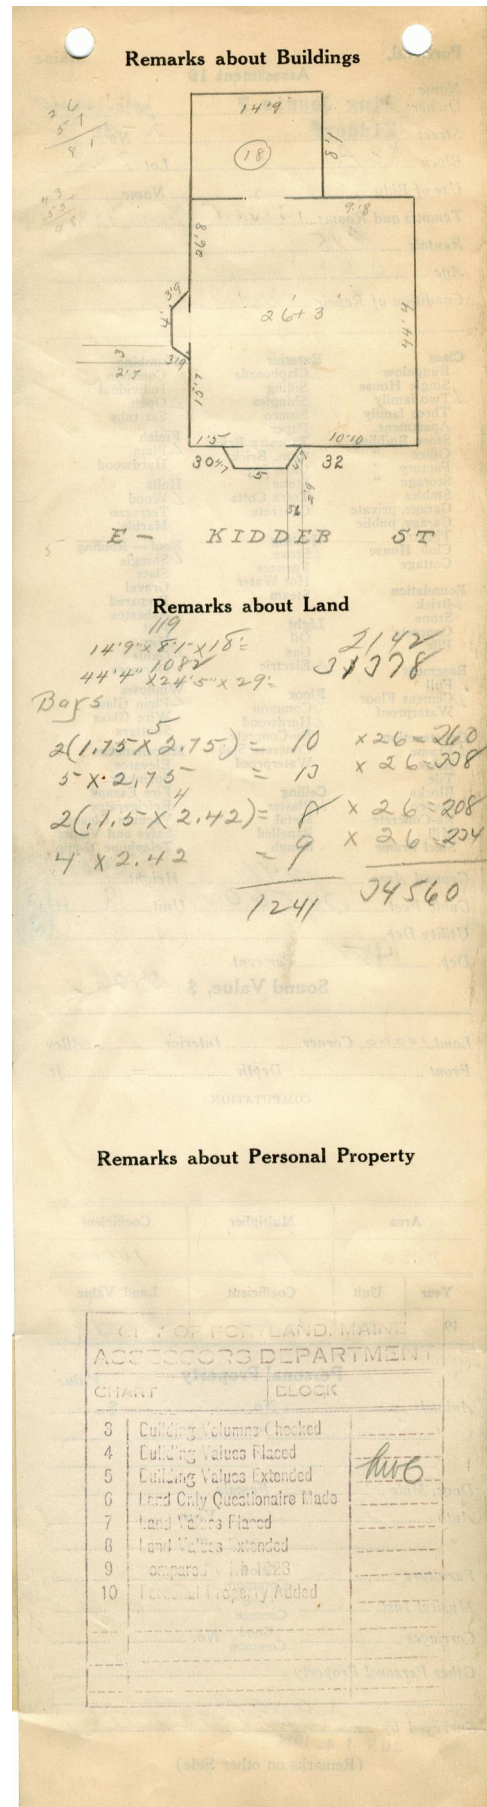 Remarks about Buildings
14'9
8'1
18
26'8
9'8
3'9
4'
26+3
44'4
3'9
3
2'5
15'7
1'5
10'10
30
4'7
5
4'7
32
2'9
36
E- KIDDER ST
Remarks about Land
119
14'9" x 8'1" x 18 = 2142
1082
44'4" x 24'5" x 29 = 31378
Bays
5
2(1.75 x 2.75) = 10 x 26 = 260
5 x 2.75 = 13 x 26 = 338
4
2(1.5 x 2.42) = 8 x 26 = 208
4 x 2.42 = 9 x 26 = 234
1241 34560
Remarks about Personal Property
CITY OF PORTLAND, MAINE
ASSESSORS DEPARTMENT
CHART BLOCK
3 Building Volumns Checked
4 Building Values Placed
5 Building Values Extended
6 Land Only Questionaire Made
7 Land Values Placed
8 Land Values Extended
9 ompared 1923
10 Personal Property Added